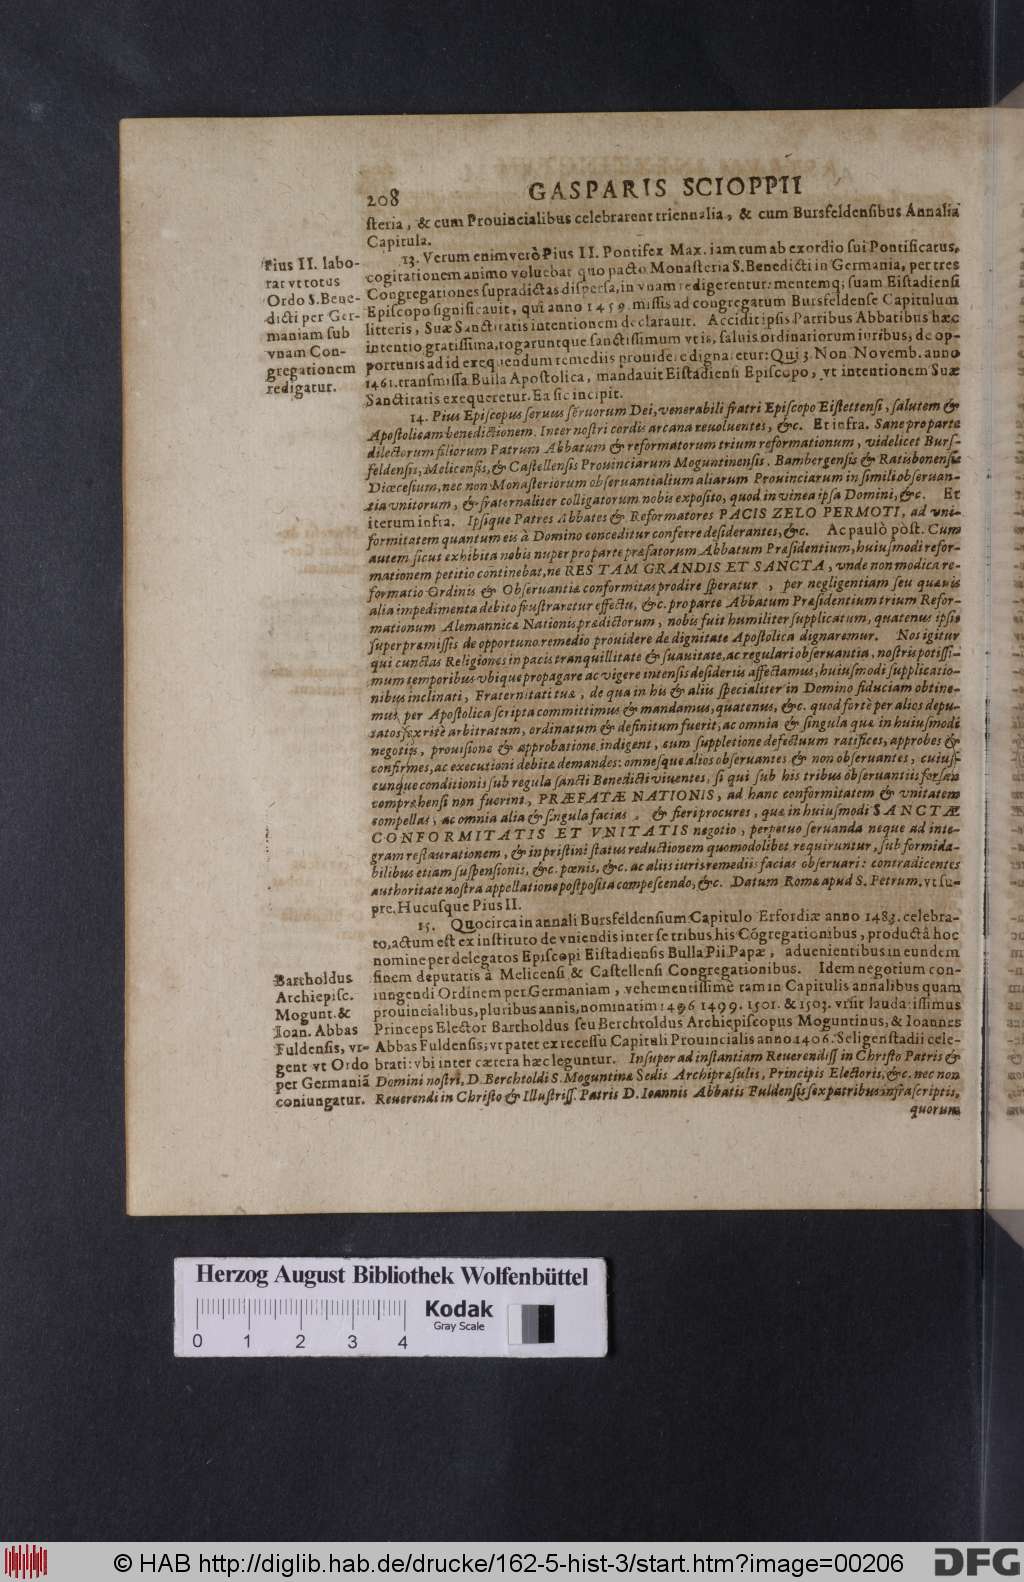 208
GASPARIS SCIOPPII
ſteria, & cum Prouincialibus celebrarent triennalia, & cum Bursfeldenſibus Annalia
Capitula.
13. Verum enimuerò Pius II. Pontifex Max. iam tum ab exordio ſui Pontificatus,
cogitationem animo voluebat quo pacto Monaſteria S. Benedicti in Germania, per tres
Congregationes ſupradictas diſperſa, in vnam redigerentur: mentemq; ſuam Eiſtadienſi
Epiſcopo ſignificauit, qui anno 1459. miſſis ad congregatum Bursfeldenſe Capitulum
litteris, Suæ Sanctitatis intentionem declarauit. Accidit ipſis Patribus Abbatibus hæc
intentio gratiſſima, rogaruntque ſanctiſſimum vt is, ſaluis ordinariorum iuribus, de op-
portunis ad id exequendum remediis prouidere dignaretur: Qui 3. Non Novemb. anno
1461. transmiſſa Bulla Apoſtolica, mandauit Eiſtadienſi Epiſcopo, vt intentionem Suæ
Sanctitatis exequeretur. Ea ſic incipit.
14. Pius Epiſcopus ſeruus ſeruorum Dei, venerabili fratri Epiſcopo Eiſtettenſi, ſalutem &
Apoſtolicam benedictionem. Inter noſtri cordis arcana reuoluentes, &c. Et infra. Sane pro parte
dilectorum filiorum Patrum Abbatum & reformatorum trium reformationum, videlicet Burſ-
feldenſis, Melicenſis, & Caſtellenſis Prouinciarum Moguntinenſis, Bambergenſis & Ratisbonenſis
Diœceſium, nec non Monaſteriorum obſeruantialium aliarum Prouinciarum in ſimili obſeruan-
tia vnitorum, & fraternaliter colligatorum nobis expoſito, quod in vinea ipſa Domini, &c. Et
iterum infra. Ipſique Patres Abbates & Reformatores PACIS ZELO PERMOTI, ad vni-
formitatem quantum eis à Domino conceditur conferre deſiderantes, &c. Ac paulò pòſt. Cum
autem ſicut exhibita nobis nuper pro parte præfatorum Abbatum Præſidentium, huiuſmodi refor-
mationem petitio continebat, ne RES TAM GRANDIS ET SANCTA, vnde non modica re-
formatio Ordinis & Obſeruantiæ conformitas prodire ſperatur, per negligentiam ſeu quæuis
alia impedimenta debito fruſtraretur effectu, &c. pro parte Abbatum Præſidentium trium Refor-
mationum Alemannicæ Nationis prædictorum, nobis fuit humiliter ſupplicatum, quatenus ipſis
ſuper præmiſſis de opportuno remedio prouidere de dignitate Apoſtolica dignaremur. Nos igitur
qui cunctas Religiones in pacis tranquillitate & ſuauitate, ac regulari obſeruantia, noſtris potiſſi-
mum temporibus vbique propagare ac vigere intenſis deſideriis affectamus, huiuſmodi ſupplicatio-
nibus inclinati, Fraternitati tuæ, de qua in his & aliis ſpecialiter in Domino fiduciam obtine-
mus, per Apoſtolica ſcripta committimus & mandamus, quatenus, &c. quod fortè per alios depu-
tatos ſex ritè arbitratum, ordinatum & definitum fuerit, ac omnia & ſingula quæ in huiuſmodi
negotiis, prouiſione & approbatione indigent, cum ſuppletione defectuum ratifices, approbes &
confirmes, ac executioni debitæ demandes: omneſque alios obſeruantes & non obſeruantes, cuiuſ-
cunque conditionis ſub regula ſancti Benedicti viuentes, ſi qui ſub his tribus obſeruantiis forſan
comprehenſi non fuerint, PRÆFATÆ NATIONIS, ad hanc conformitatem & vnitatem
compellas, ac omnia alia & ſingula facias, & fieri procures, quæ in huiuſmodi SANCTÆ
CONFORMITATIS ET VNITATIS negotio, perpetuo ſeruanda neque ad inte-
gram reſtaurationem, & in priſtini ſtatus reductionem quomodolibet requiruntur, ſub formida-
bilibus etiam ſuſpenſionis, &c. pœnis, &c. ac aliis iuris remediis facias obſeruari: contradicentes
authoritate noſtra appellatione poſtpoſita compeſcendo, &c. Datum Romæ apud S. Petrum, vt ſu-
pre. Hucuſque Pius II.
15. Quocirca in annali Bursfeldenſium Capitulo Erfordiæ anno 1483. celebra-
to, actum eſt ex inſtituto de vniendis inter ſe tribus his Cōgregationibus, productâ hoc
nomine per delegatos Epiſcopi Eiſtadienſis Bulla Pii Papæ, aduenientibus in eundem
finem deputatis à Melicenſi & Caſtellenſi Congregationibus. Idem negotium con-
iungendi Ordinem per Germaniam, vehementiſſimè tam in Capitulis annalibus quam
prouincialibus, pluribus annis, nominatim 1496 1499. 1501. & 1503. vrſit laudatiſſimus
Princeps Elector Bartholdus ſeu Berchtoldus Archiepiſcopus Moguntinus, & Ioannes
Abbas Fuldenſis; vt patet ex receſſu Capituli Prouincialis anno 1406. Seligenſtadii cele-
brati: vbi inter cætera hæc leguntur. Inſuper ad inſtantiam Reuerendiſſ in Chriſto Patris &
Domini noſtri, D. Berchtoldi S. Moguntinæ Sedis Archipræſulis, Principis Electoris, &c. nec non
Reuerendi in Chriſto & Illuſtriſſ. Patris D. Ioannis Abbatis Fuldenſis ſex patribus infraſcriptis,
quorum
Pius II. labo-
rat vt totus
Ordo S. Bene-
dicti per Ger-
maniam ſub
vnam Con-
gregationem
redigatur.
Bartholdus
Archiepiſc.
Mogunt. &
Ioan. Abbas
Fuldenſis, vr-
gent vt Ordo
per Germaniā
coniungatur.
Herzog August Bibliothek Wolfenbüttel
0 1 2 3 4
Kodak
Gray Scale
© HAB http://diglib.hab.de/drucke/162-5-hist-3/start.htm?image=00206
DFG